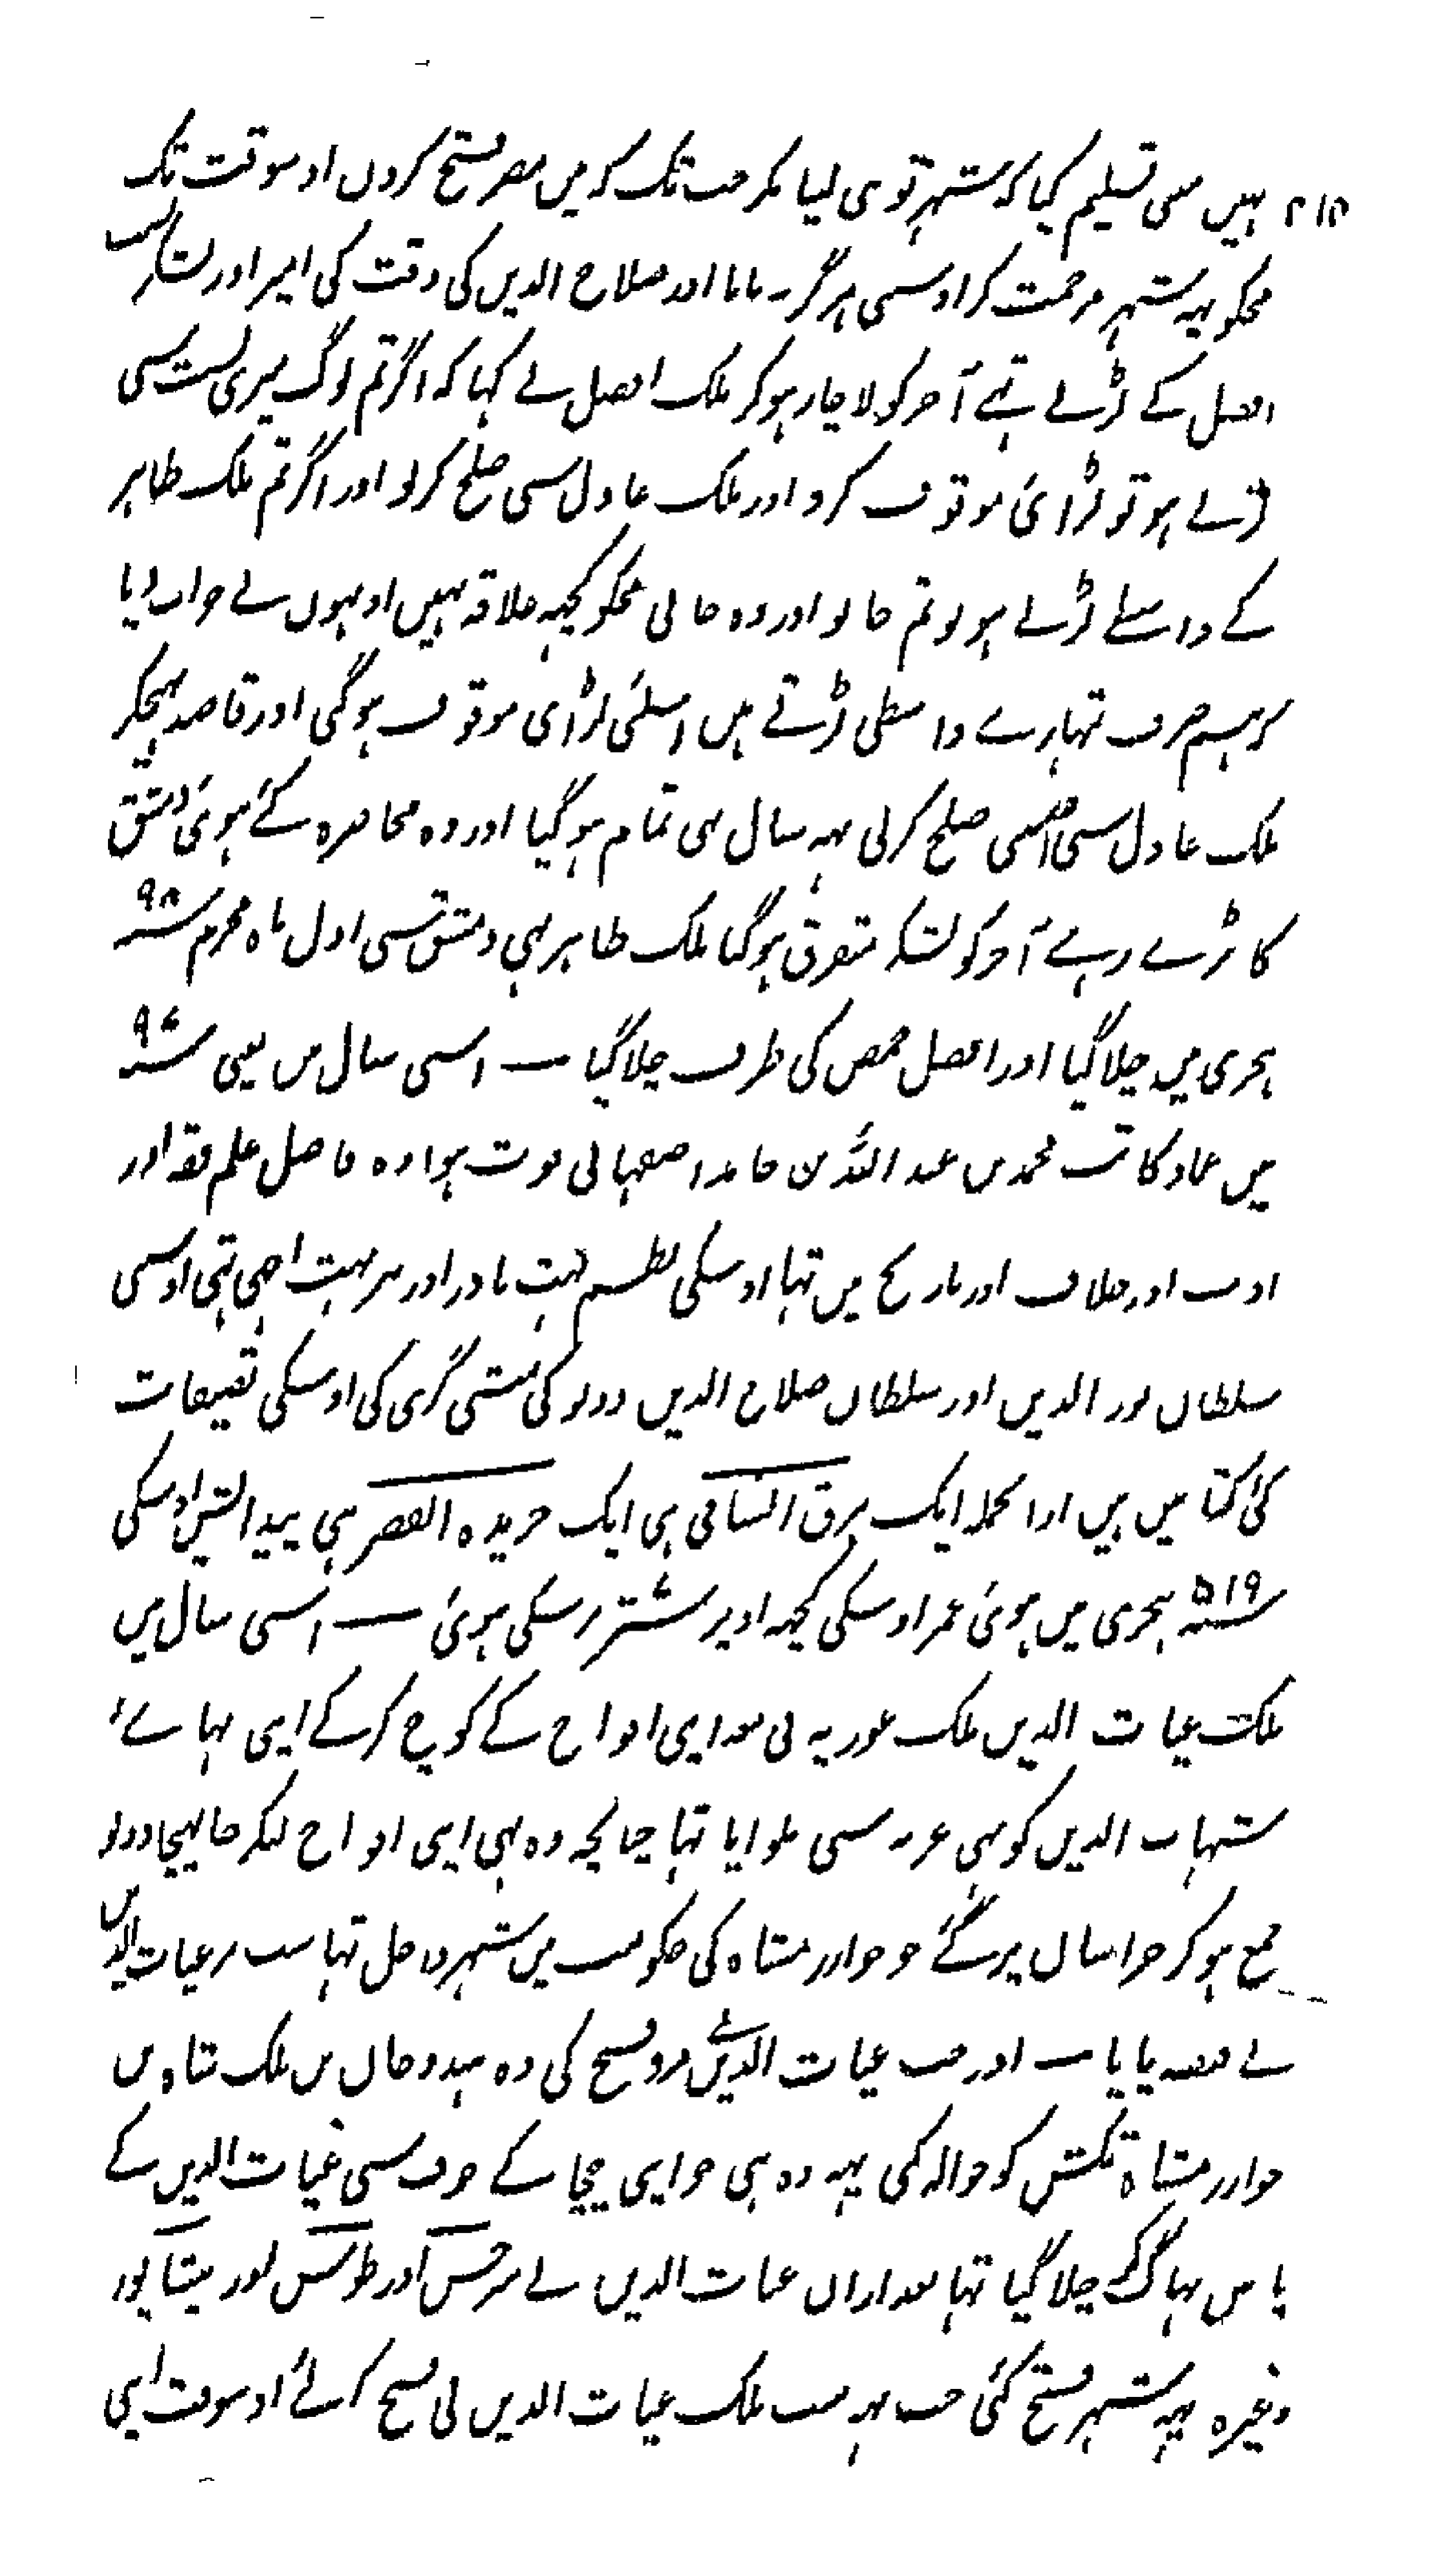 ۲۱۸ ہیں میں تسلیم کیا کہ شہر توی لیا مگر جب تک کہ میں مصر فتح کردوں اوسوقت تک
مجکو یہہ شہر مرحمت کر اوسی ہرگز نہ مانا اور صلاح الدین کی وقت کی امیر اور لشکر سب
افضل کے لڑتے تہے آخر کو لاچار ہو کر ملک افضل نے کہا کہ اگر تم لوگ میری نسبت سی
لڑتے ہو تو لڑائی موقوف کرو اور ملک عادل سی صلح کرلو اور اگر تم ملک ظاہر
کے واسطے لڑتے ہو تو تم جانو اور وہ جانی مجکو کچہہ علاقہ نہیں اونہوں نے جواب دیا
کہ ہم صرف تمہارے واسطی لڑتے ہیں اسلئی لڑائی موقوف ہوگی اور قاصد بہیجکر
ملک عادل سی صلح کرلی یہہ سال بہی تمام ہوگیا اور وہ محاصرہ کئے ہوئی دمشق
کا پڑے رہے آخر کو لشکر متفرق ہوگیا ملک ظاہر بہی دمشق سی اول ماہ محرم سنہ ۹۸
ہجری میں چلا گیا اور افضل حمص کی طرف چلا گیا ــ اسی سال میں یعنی سنہ ۹۷
میں عماد کاتب محمد بن عبد اللہ بن حامد اصفہانی فوت ہوا وہ فاضل علم فقہ اور
ادب اور خلاف اور تاریخ میں تہا اوسکی نظم بہت نادر اور نثر بہت اچہی تہی اوسی
سلطان نور الدین اور سلطان صلاح الدین دونو کی منشی گری کی اوسکی تصنیفات
کئی کتابیں ہیں ازانجملہ ایک برق الشامی ہی ایک خریدہ القصر ہی پیدایش اوسکی
سنہ ۵۱۹ ہجری میں ہوئی عمر اوسکی کچہہ اوپر ستر برسکی ہوئی ــ اسی سال میں
ملک غیاث الدین ملک غوریہ نی بعد اپنی افواج کے کوچ کرکے اپنی بہائے
شہاب الدین کو بہی غزنہ سی بلوایا تہا چنانچہ وہ بہی اپنی افواج لیکر جا پہنچا دونو
جمع ہو کر خراسان پر گئے جو خوارزمشاہ کی حکومت میں شہر داخل تہا سب پر غیاث الدین
نے قبضہ پایا ــ اور جب غیاث الدین نے مرو فتح کی وہ ہندوخان بن ملک شاہ بن
خوارزمشاہ تکش کو حوالہ کی یہہ وہ ہی جو اپنی چچا کے خوف سی غیاث الدین کے
پاس بہاگ کر چلا گیا تہا بعد ازاں غیاث الدین نے سرخس اور طوس اور نیشاپور
وغیرہ یہہ شہر فتح کئی جب یہہ سب ملک غیاث الدین نی فتح کرلئے اوسوقت اپنی